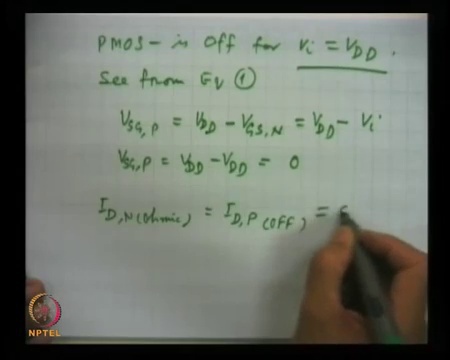 PMOS - is Off for Vi = VDD.
See from Eq ①
VSG,P = VDD - VGS,N = VDD - Vi
VSG,P = VDD - VDD = 0
ID,N(Ohmic) = ID,P(OFF) =
NPTEL